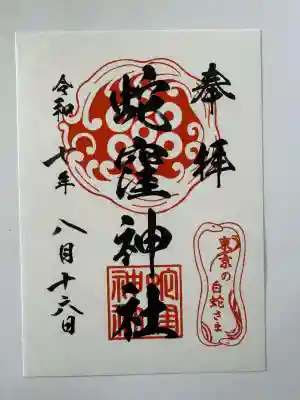 奉拝
蛇窪神社
令和七年
八月十六日
東京の
白蛇さま